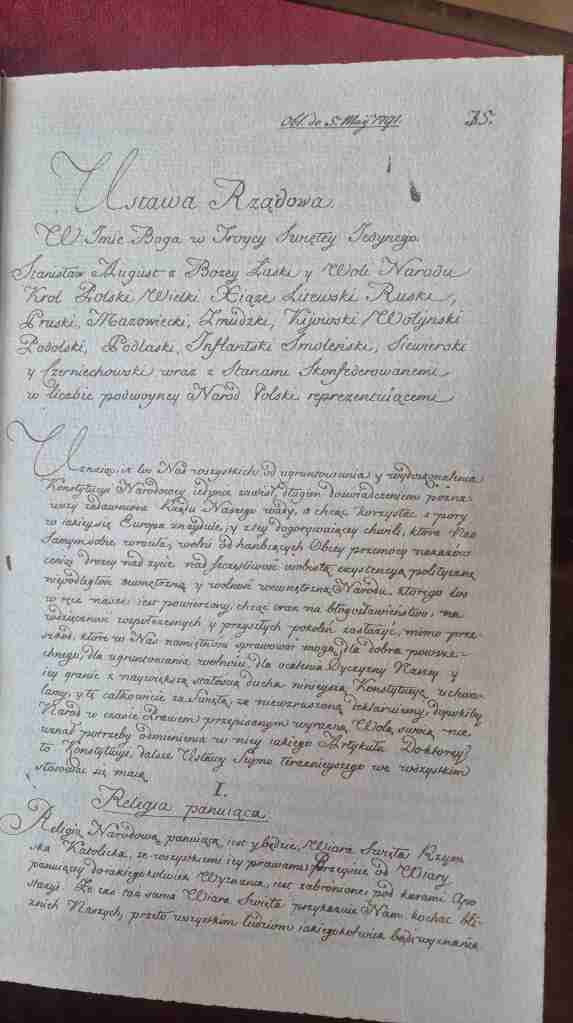 Obl. de 5. Maij 1791. 35.
Ustawa Rządowa
W Imie Boga w Troycy Swiętey Jedynego.
Stanisław August z Bożey Łaski y Woli Narodu
Krol Polski Wielki Xiąże Litewski Ruski,
Pruski, Mazowiecki, Zmudzki, Kijowski Wołynski
Podolski, Podlaski, Inflantski Smolenski, Siewierski
y Czerniechowski wraz z Stanami Skonfederowanemi
w liczbie podwoyney Narod Polski reprezentuiącemi
Uznaiąc, iż los Nas wszystkich od ugruntowania y wydoskonalenia
Konstytucyi Narodowey iedynie zawisł, długim doswiadczeniem pozna
wszy zadawnione Rządu Naszego wady, a chcąc korzystać z pory
w iakiey się Europa znayduie, y z tey dogorywaiącey chwili, ktora Nas
samym sobie wrociła, wolni od hanbiących Obcey przemocy nakazow
ceniąc drożey nad życie nad szczęsliwość osobistą exystencyą polityczną
niepodległość zewnętrzną y wolność wewnętrzną Narodu, ktorego los
w ręce nasze iest powierzony, chcąc oraz na błogosławieństwo, na
wdzięcznosc wspołczesnych y przyszłych pokoleń zasłużyć, mimo prze
szkod, ktore w Nas namiętnosci sprawować mogą, dla dobra powsze-
chnego, dla ugruntowania wolnosci, dla ocalenia Oyczyzny Naszey y
iey granic z naywiększą stałoscią ducha ninieyszą Konstytucyę uchwa-
lamy, y tę całkowicie za swiętą, za niewzruszoną deklaruiemy, dopokiby
Narod w czasie Prawem przepisanym wyrazną Wolą swoią nie
uznał potrzeby odmienienia w niey iakiego Artykułu Do ktorey
to Konstytucyi, dalsze Ustawy Seymu teraznieyszego we wszystkim
stosować się maią.
I.
Religia panuiąca
Religią Narodową panuiącą iest y będzie, Wiara Swięta Rzym
ska Katolicka, ze wszystkiemi iey prawami, Przeyscie od Wiary
panuiącey do iakiegokolwiek Wyznania, iest zabronione pod karami Apo
stazyi. Że zaś taż sama Wiara Swięta przykazuie Nam kochać bli-
znich Naszych, przeto wszystkim ludziom iakiegokolwiek bądź wyznania